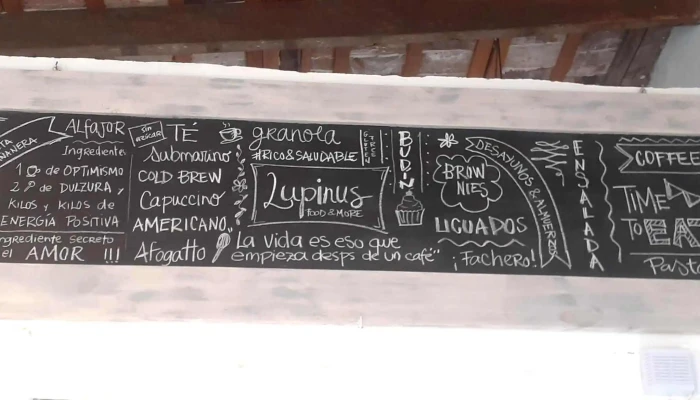 MAÑANERA
ALfAJOR
Ingredientes
1 de OPTIMISMO
2 de DULZURA y
KILOS y KILOS de
ENERGÍA POSITIVA
Ingrediente secreto
el AMOR !!!
sin azúcar
TÉ
Submarino
COLD BREW
Capuccino
AMERICANO
Afogatto
granola
#RICO&SALUDABLE
GLUTEN FREE
Lupinus
FOOD & MORE
"La vida es eso que
empieza desps de un café"
BUDÍN
BROW
NIES
LIGUADOS
¡Fachero!
DESAYUNOS & ALMUERZOS
ENSALADA
COFFEE
TIME
TO EA
Pasta